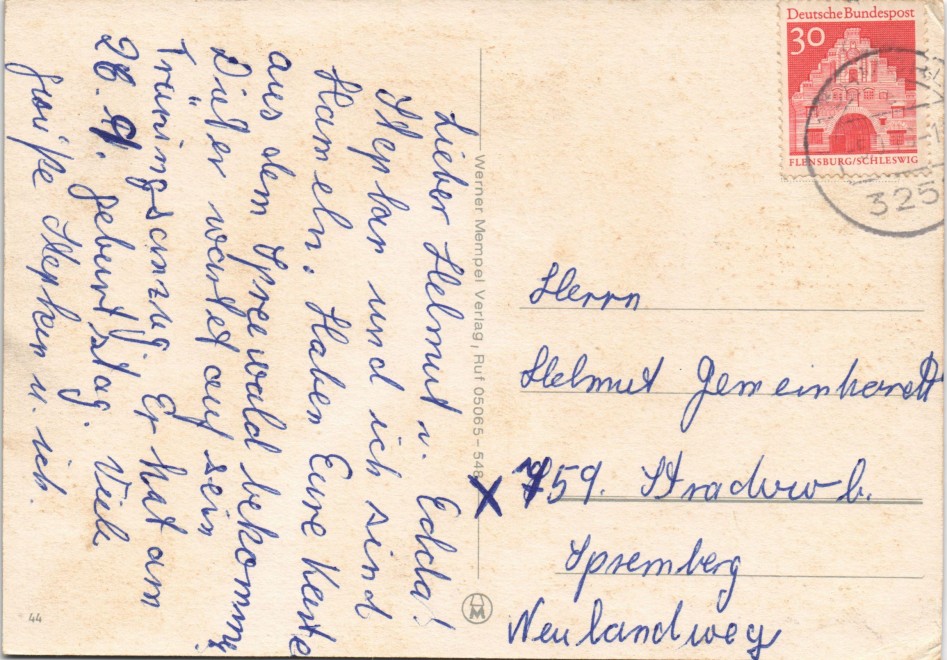 Lieber Helmut u. Edda!
Stephan und ich sind
Hameln. Haben Eure Karte
aus dem Spreewald bekommen.
Dieter wartet auf sein
Trainingsanzug. Er hat am
28. 9. geburtstag. Viele
grüße Stephan u. ich.
Werner Mempel Verlag, Ruf 05065-548
44
M
Deutsche Bundespost
30
FLENSBURG/SCHLESWIG
325
Herrn
Helmut Gemeinhardt
X 759. Stradow b.
Spremberg
Neulandweg